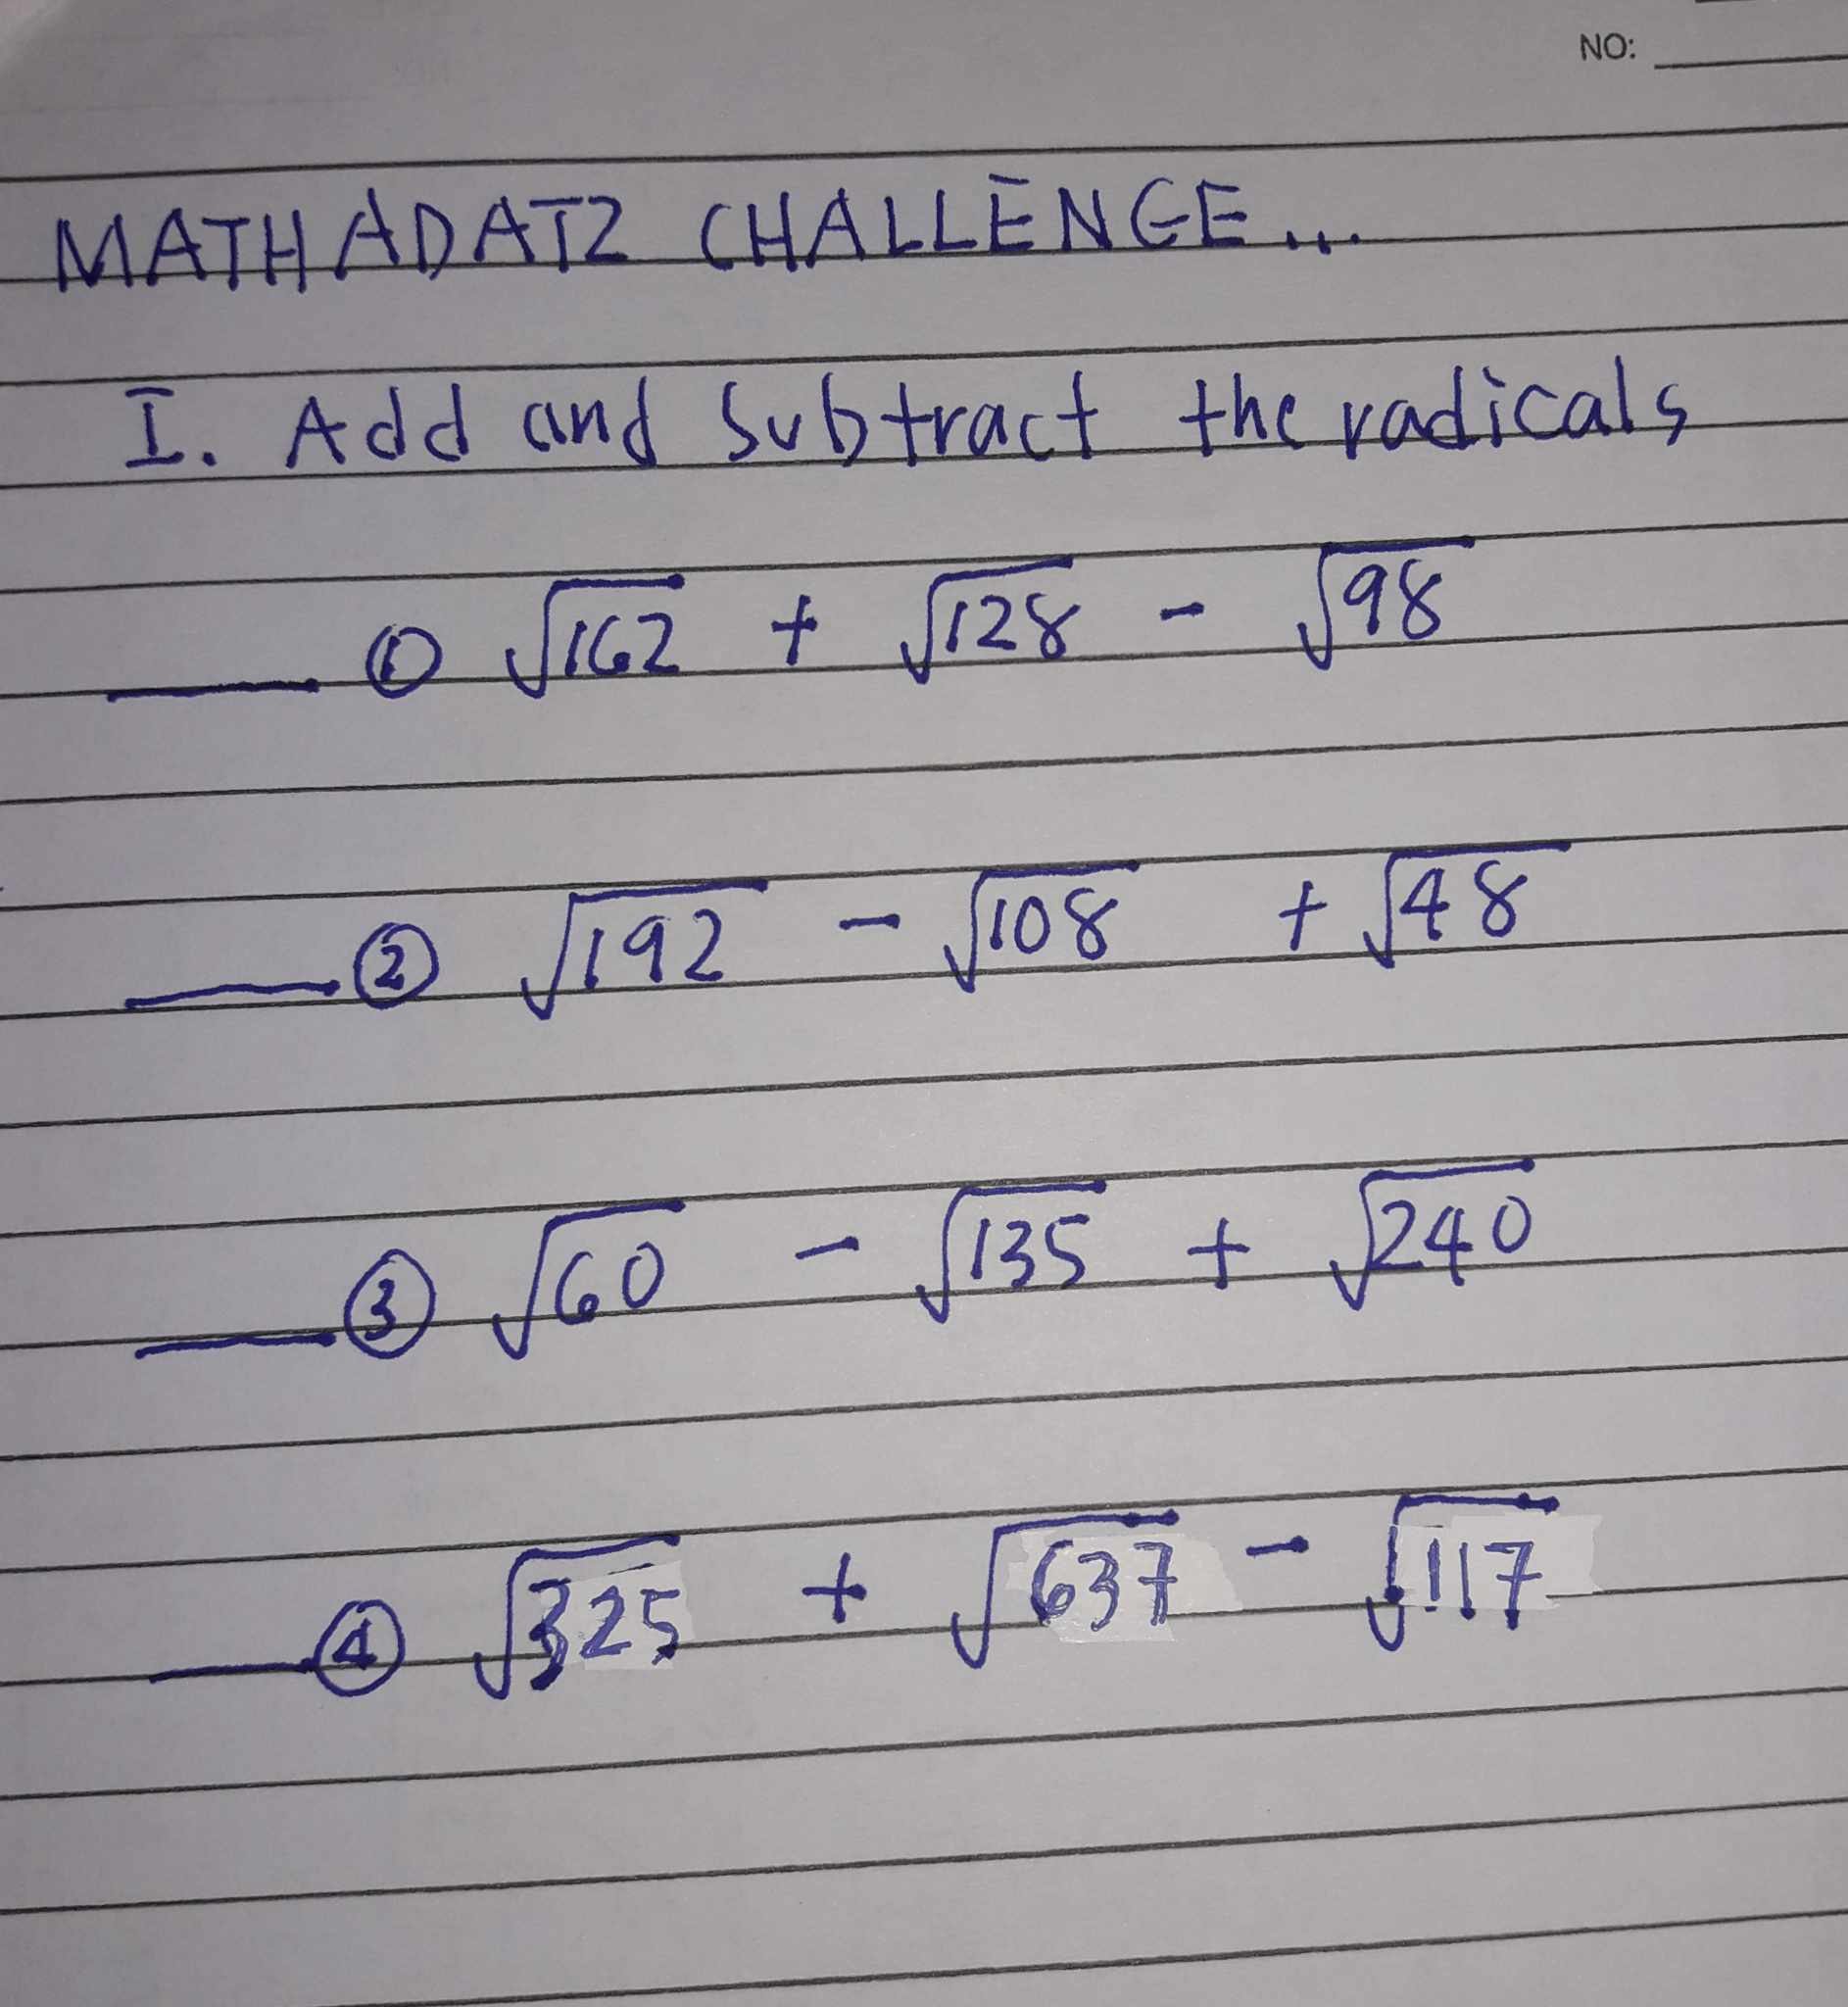 NO:
MATHADATZ CHALLENGE...
I. Add and Subtract the radicals
① √162 + √128 - √98
② √192 - √108 + √48
③ √60 - √135 + √240
④ √325 + √637 - √117